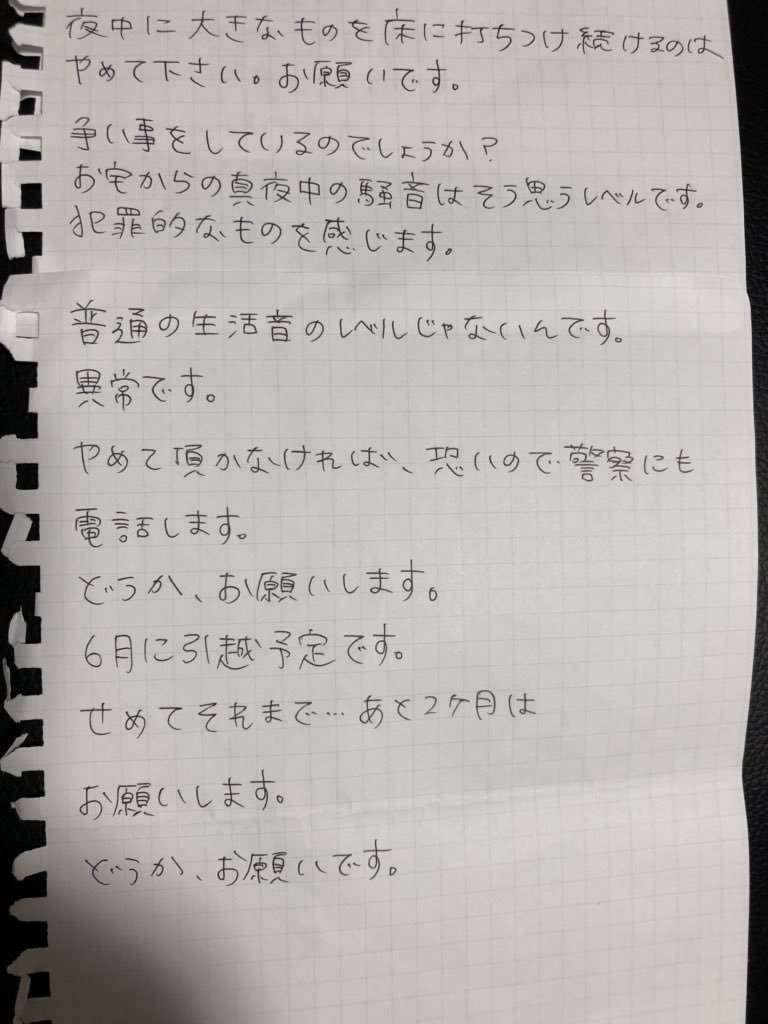 夜中に大きなものを床に打ちつけ続けるのは
やめて下さい。お願いです。
争い事をしているのでしょうか?
お宅からの真夜中の騒音はそう思うレベルです。
犯罪的なものを感じます。
普通の生活音のレベルじゃないんです。
異常です。
やめて頂かなければ、恐いので警察にも
電話します。
どうか、お願いします。
6月に引越予定です。
せめてそれまで…あと2ケ月は
お願いします。
どうか、お願いです。